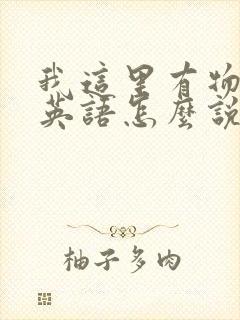 我這里有物
英語怎麼說
柚子多肉